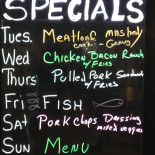 SPECIALS
Tues. Meatloaf mashed
corn - Gravy
Wed Chicken Bacon Ranch
w/ Fries
Thurs Pulled Pork Sandwich
w/ Fries
Fri FISH
Sat Pork Chops Dressing
mixed veggies
Sun MENU